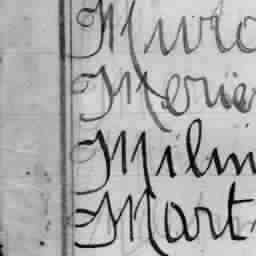 Muro
Merie
Milin
Mart